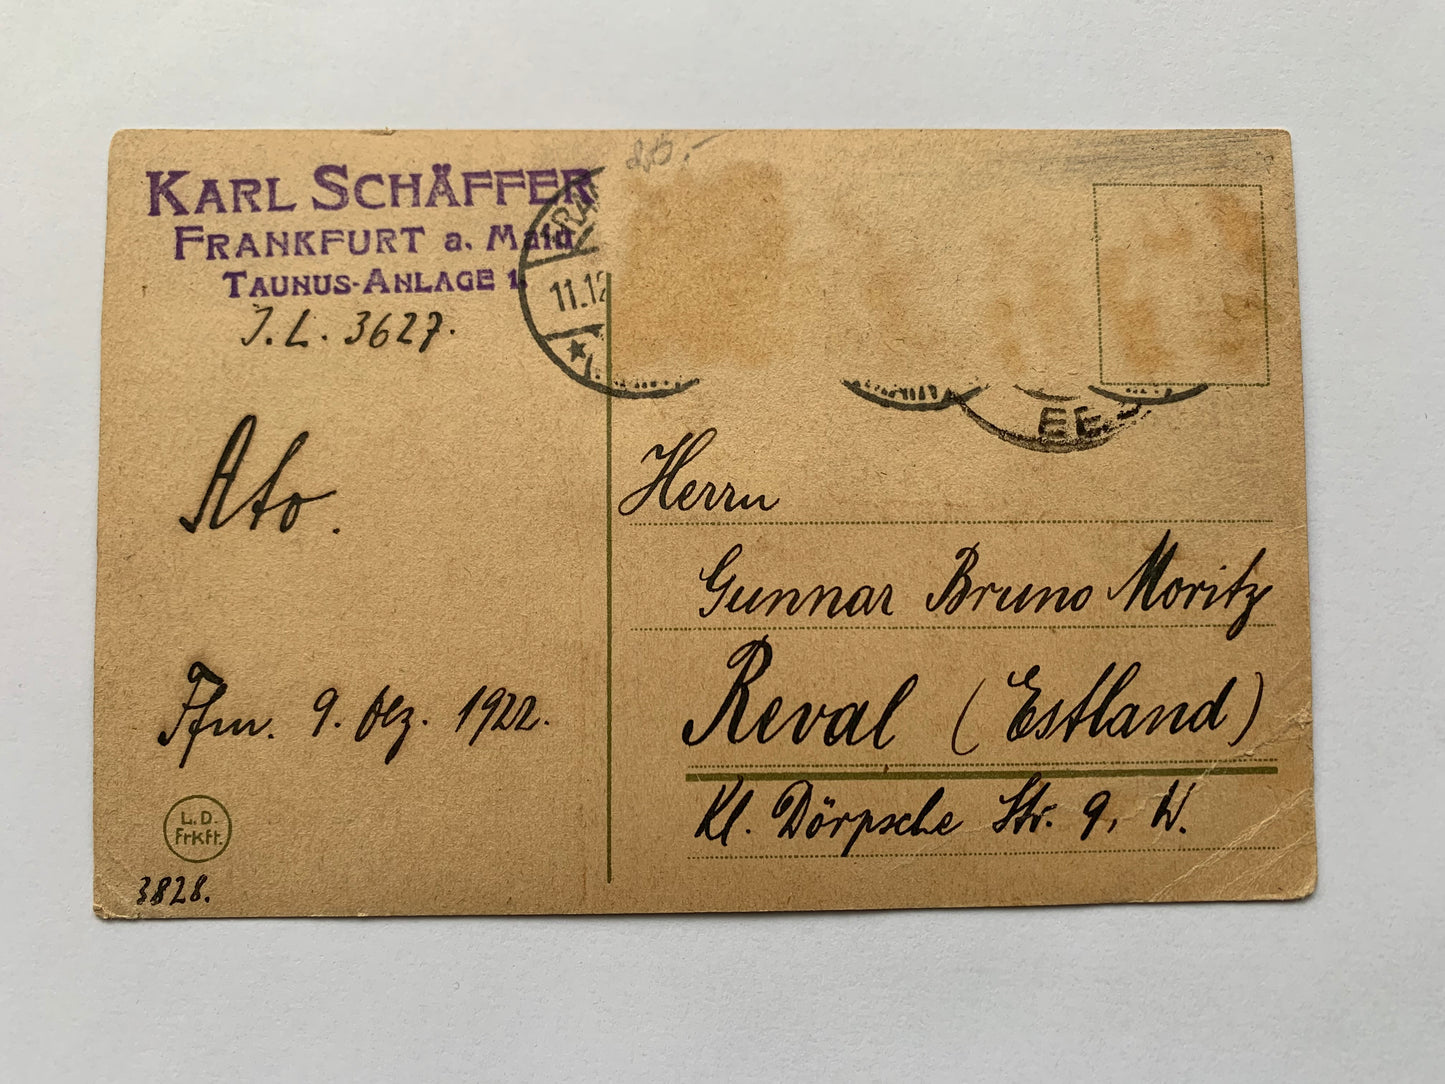 KARL SCHÄFFER
FRANKFURT a. Main
TAUNUS-ANLAGE 1.
J. L. 3627.
Ato.
Ffm. 9. Dez. 1922.
L. D.
Frkft.
3828.
11.12
Herrn
Gunnar Bruno Moritz
Reval (Estland)
Kl. Dörpsche Str. 9, W.